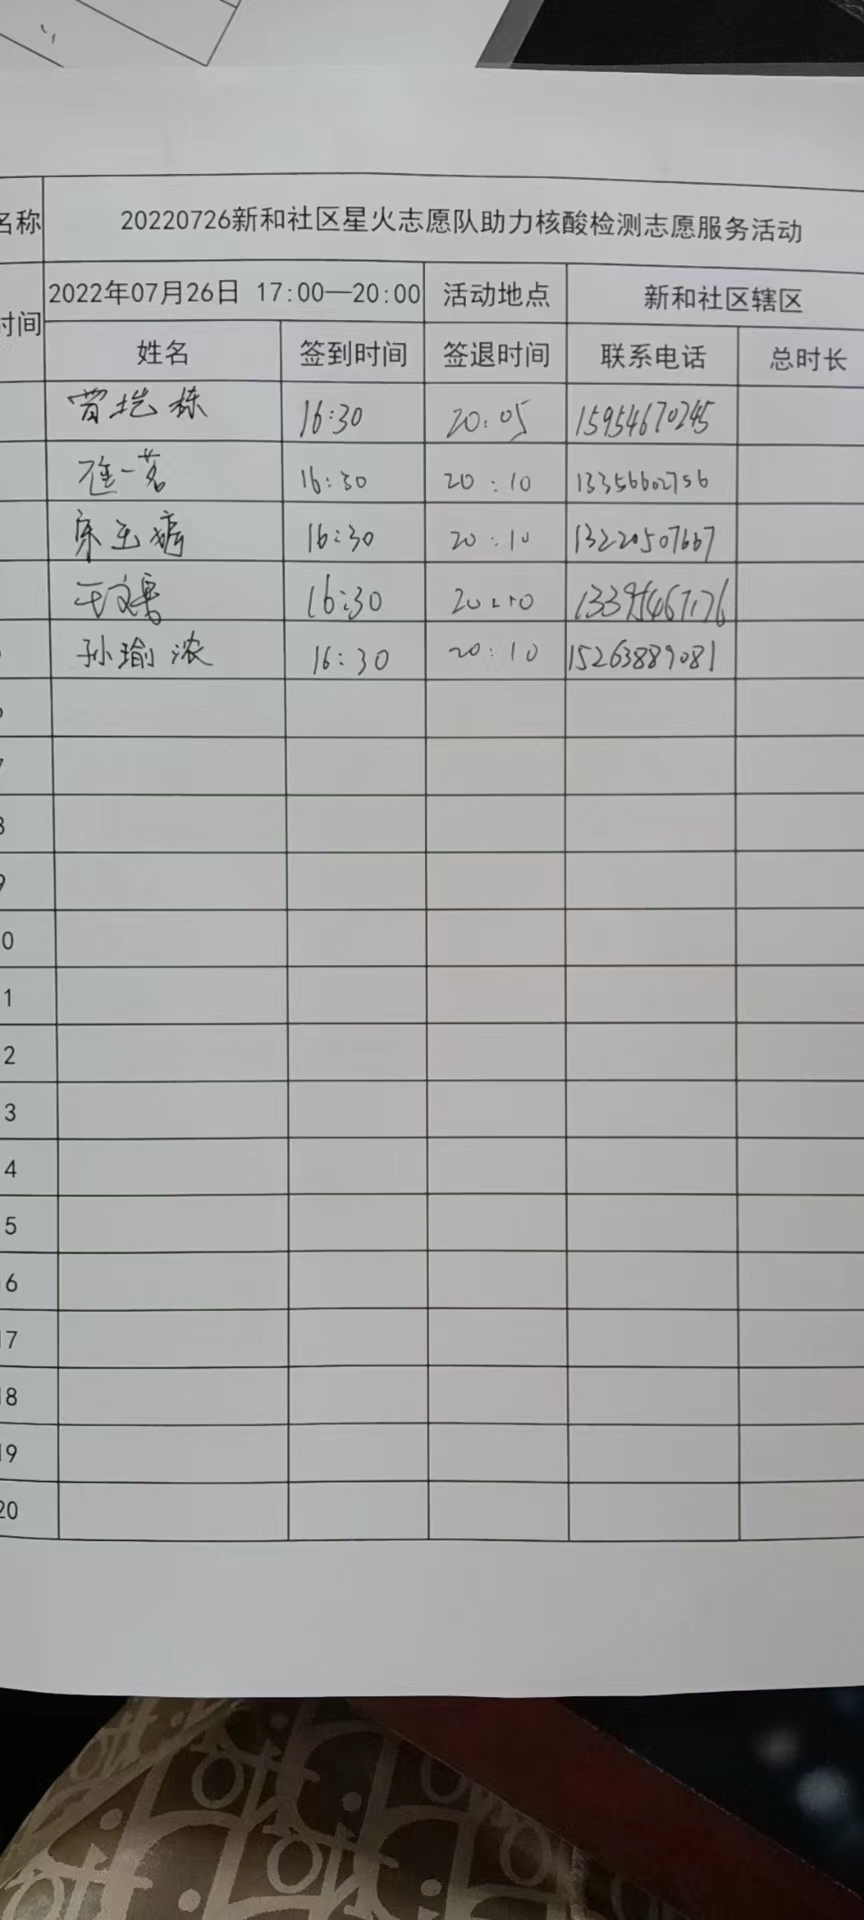 名称 20220726新和社区星火志愿队助力核酸检测志愿服务活动
时间 2022年07月26日 17:00—20:00 活动地点 新和社区辖区
姓名 签到时间 签退时间 联系电话 总时长
16:30 20:05 15954670245
16:30 20:10 13356602756
16:30 20:10 13220507667
16:30 20:10
孙瑜浓 16:30 20:10 15263889081
6
7
8
9
0
1
2
3
4
5
16
17
18
19
20